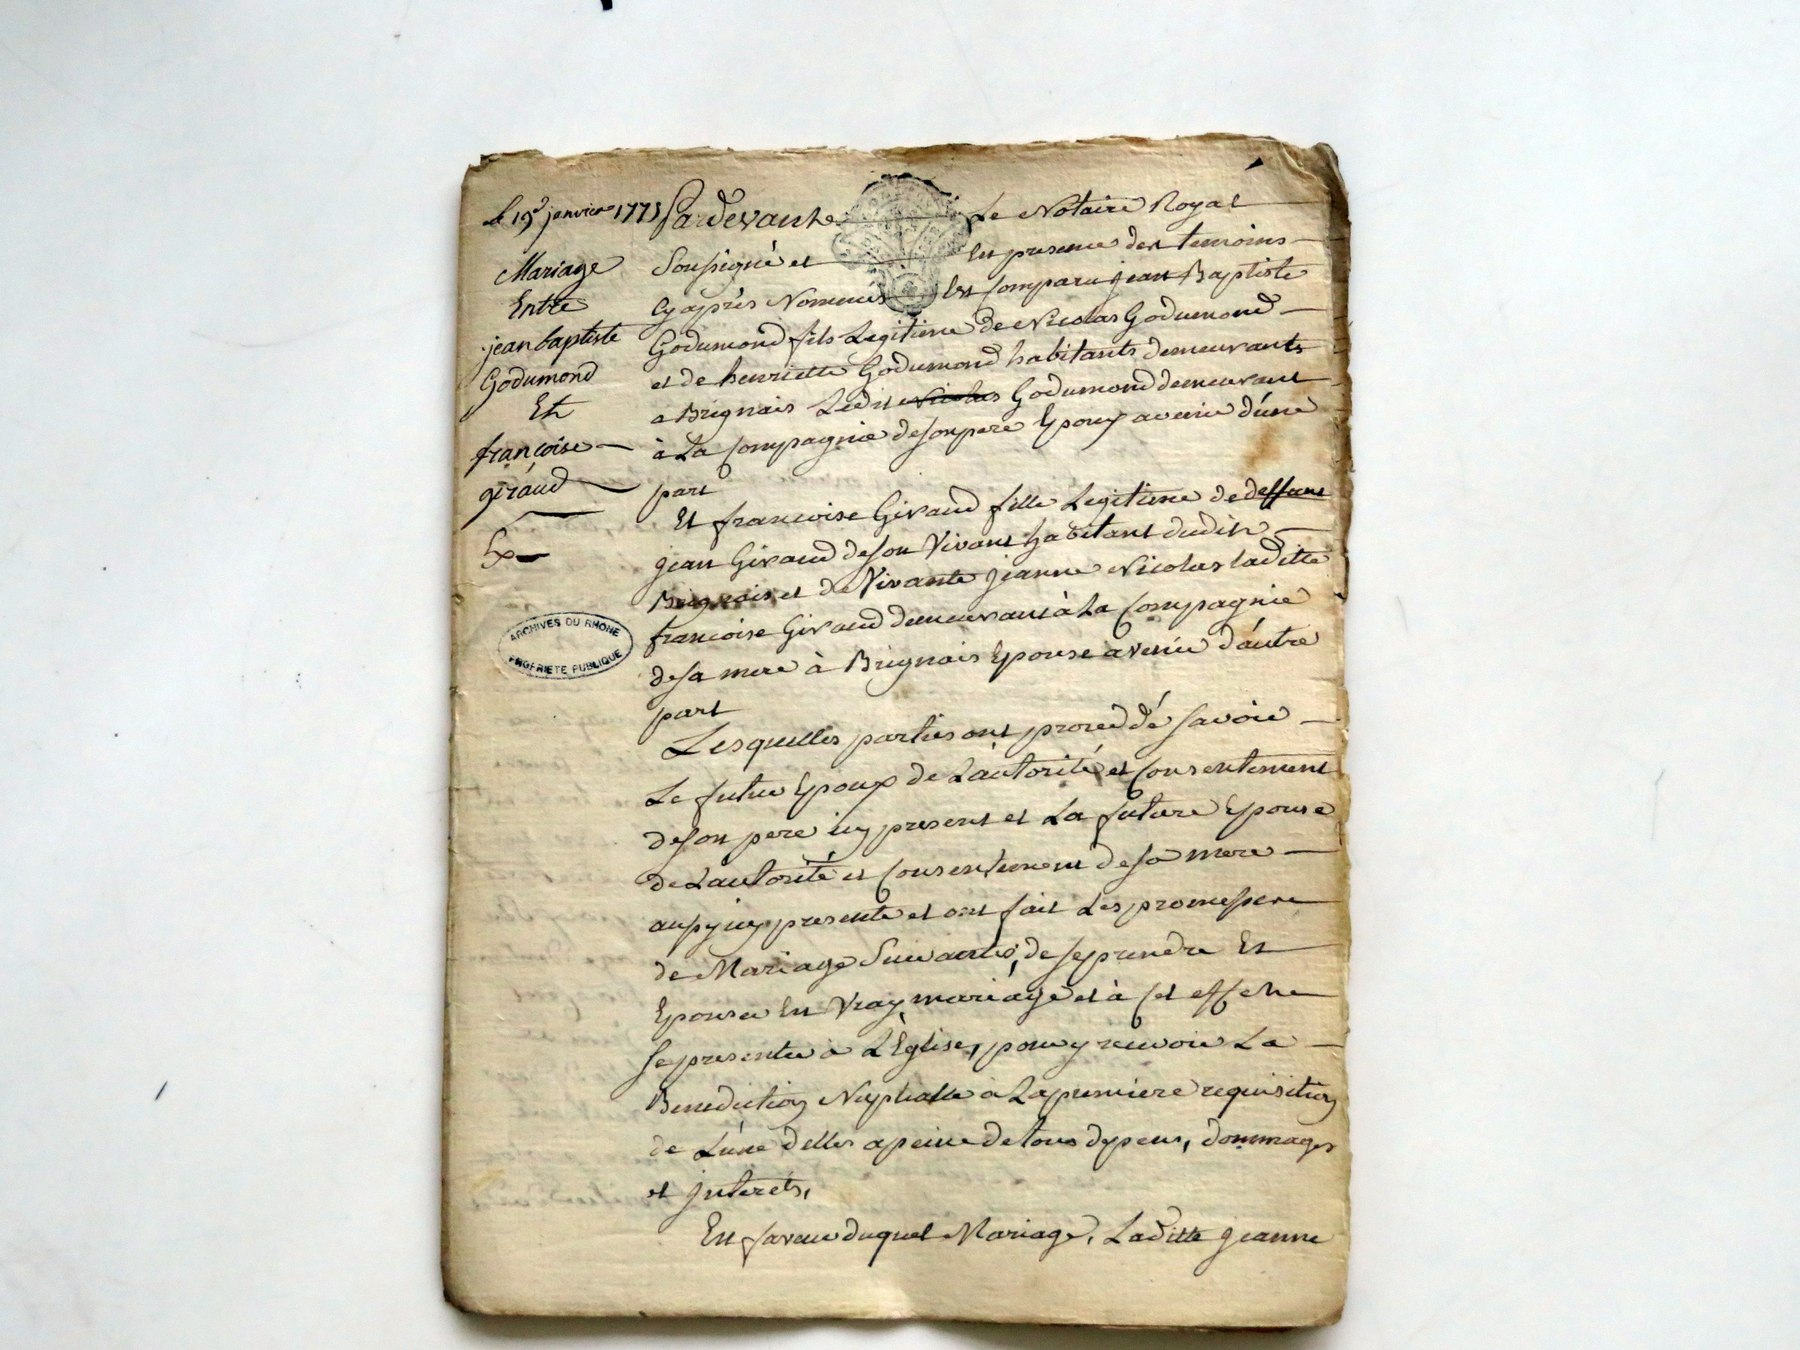 le 19e janvier 1775
Mariage
Entre
jean baptiste
Godumond
Et
françoise
giráud
Ex
ARCHIVES DU RHONE
PROPRIETE PUBLIQUE
Pardevant Le Notaire Royal
Soussigné et En presence des temoins
cy après Nommés est Comparu jean Baptiste
Godumond fils Legitime de Nicolas Godumond
et de henriette Godumond habitants demeurants
a Brignais Ledit Nicolas Godumond demeurant
à La Compagnie de son pere Epoux avenir d'une
part
Et francoise Giraud fille Legitime de deffunt
jean Giraud de son Vivant habitant dudit
Brignais et de Vivante jeanne Nicolas laditte
francoise Giraud demeurant à La Compagnie
de sa mere à Brignais Epouse avenir d'autre
part
Lesquelles parties ont proceddé savoir
Le futur Epoux de L'autorité et Consentement
de son pere icy present et La future Epouse
de L'autorité et Consentement de sa mere
aussy icy presente et ont fait Les promesses
de Mariage Suivantes, de se prendre Et
Epouser En Vray mariage et à Cet effet
se presenter a L'Eglise, pour y recevoir La
Benediction Nuptialle a La premiere requisition
de L'une d'elles a peine de tous depens, dommages
et jnterets,
En faveur duquel Mariage, Laditte jeanne